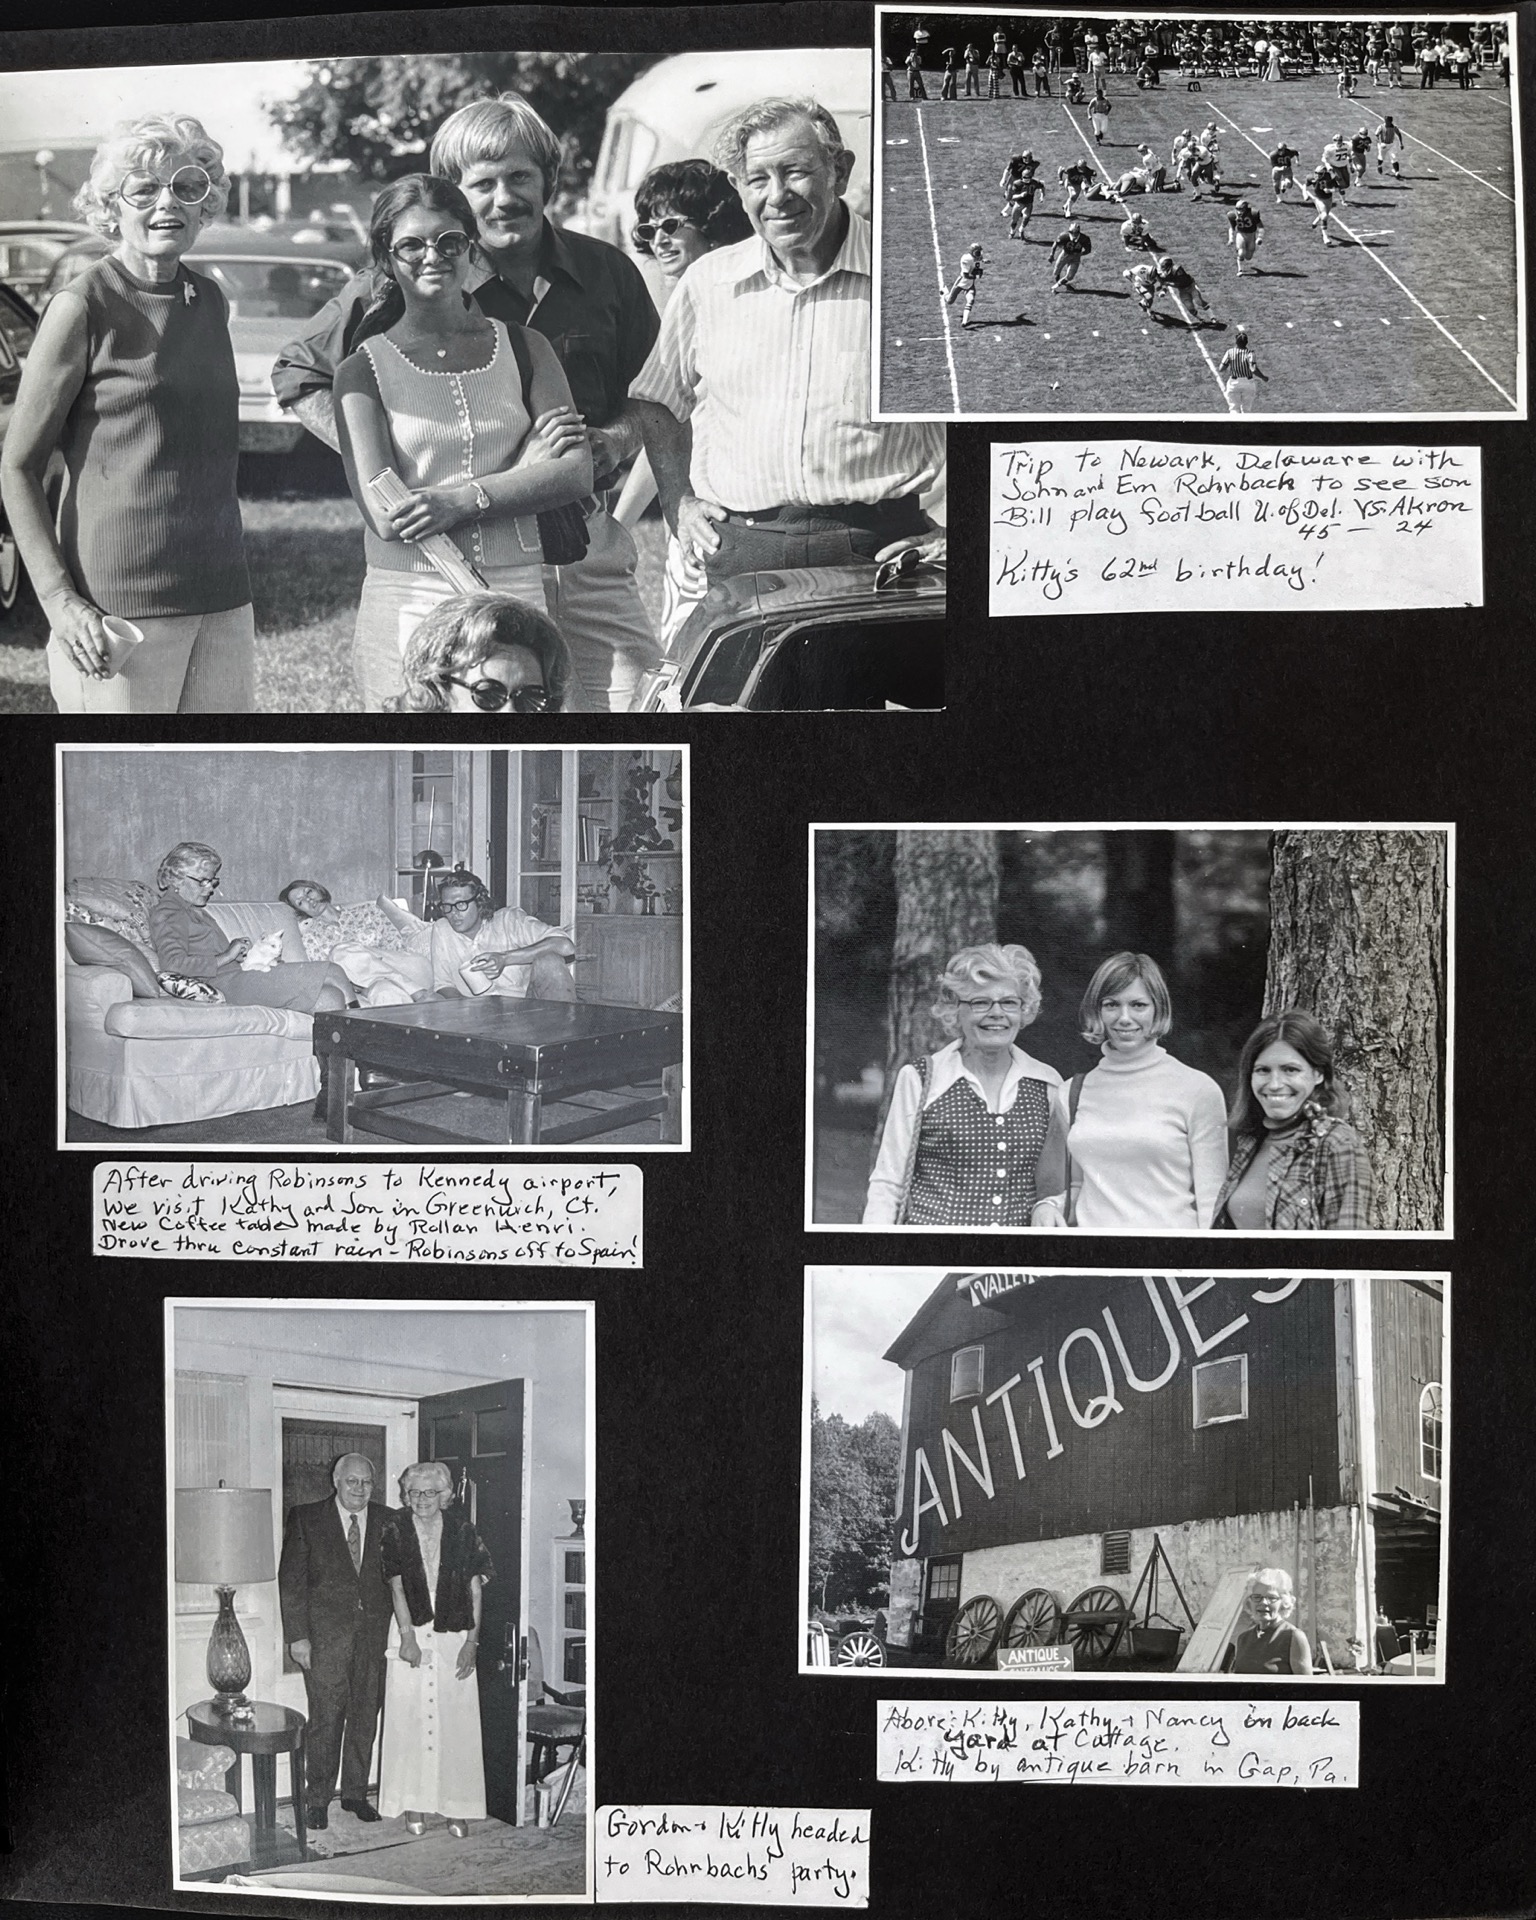 Trip to Newark, Delaware with
John and Em Rohrback to see son
Bill play football U. of Del. VS. Akron
45 — 24
Kitty's 62nd birthday!
After driving Robinsons to Kennedy airport,
We visit Kathy and Jon in Greenwich, Ct.
New Coffee table made by Rollan Henri.
Drove thru constant rain - Robinsons off to Spain!
VALLEY
ANTIQUES
ANTIQUE
ENTRANCE
Above: Kitty, Kathy, + Nancy in back
yard at Cottage.
Kitty by antique barn in Gap, Pa.
Gordon + Kitty headed
to Rohrbachs' party.